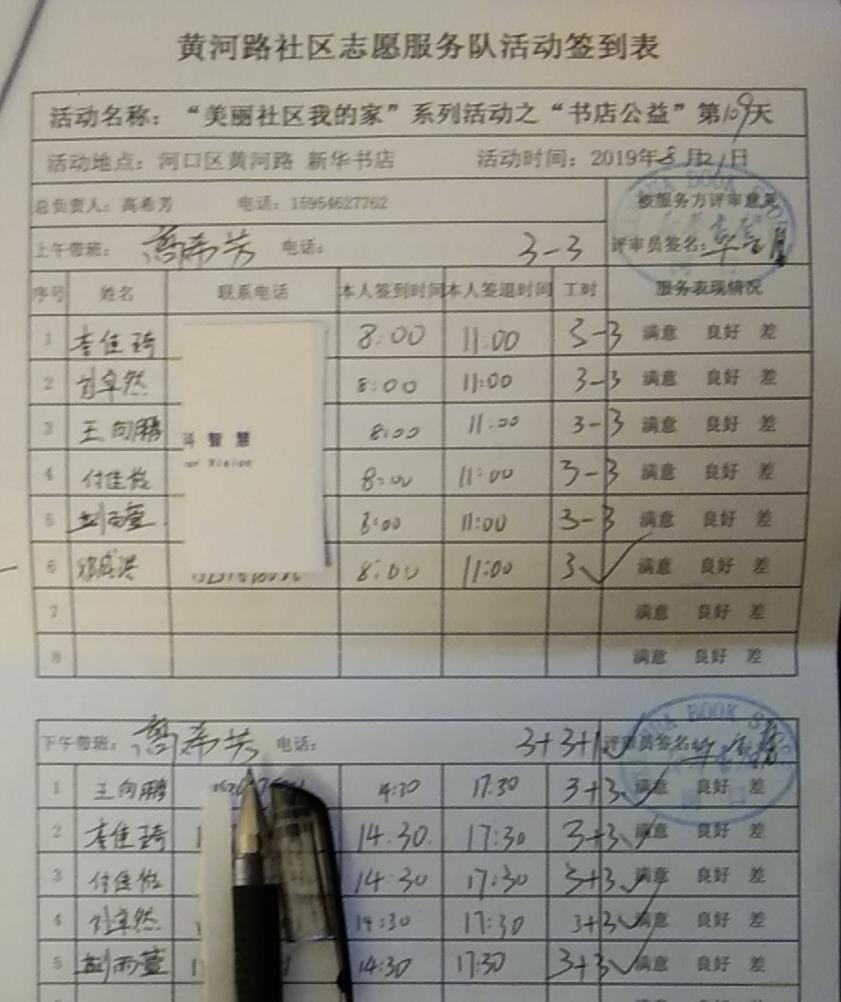 黄河路社区志愿服务队活动签到表
活动名称：“美丽社区我的家”系列活动之“书店公益”第109天
活动地点：河口区黄河路 新华书店 活动时间：2019年8月21日
总负责人：高希芳 电话：15954627762 被服务方评审意见
上午带班：高希芳 电话： 3-3 评审员签名：
序号 姓名 联系电话 本人签到时间 本人签退时间 工时 服务表现情况
1 李佳琦 8:00 11:00 3-3 满意 良好 差
2 刘卓然 8:00 11:00 3-3 满意 良好 差
3 王向鹏 智慧 8:00 11:00 3-3 满意 良好 差
Vision
4 付佳怡 8:00 11:00 3-3 满意 良好 差
5 8:00 11:00 3-3 满意 良好 差
6 8:00 11:00 3✓ 满意 良好 差
7 满意 良好 差
8 满意 良好 差
下午带班：高希芳 电话： 3+3+1✓ 评审员签名
BOOK
1 王向鹏 14:30 17:30 3+3✓ 满意 良好 差
2 李佳琦 14:30 17:30 3+3✓ 满意 良好 差
3 付佳怡 14:30 17:30 3+3✓ 满意 良好 差
4 刘卓然 14:30 17:30 3+3✓ 满意 良好 差
5 14:30 17:30 3+3✓ 满意 良好 差